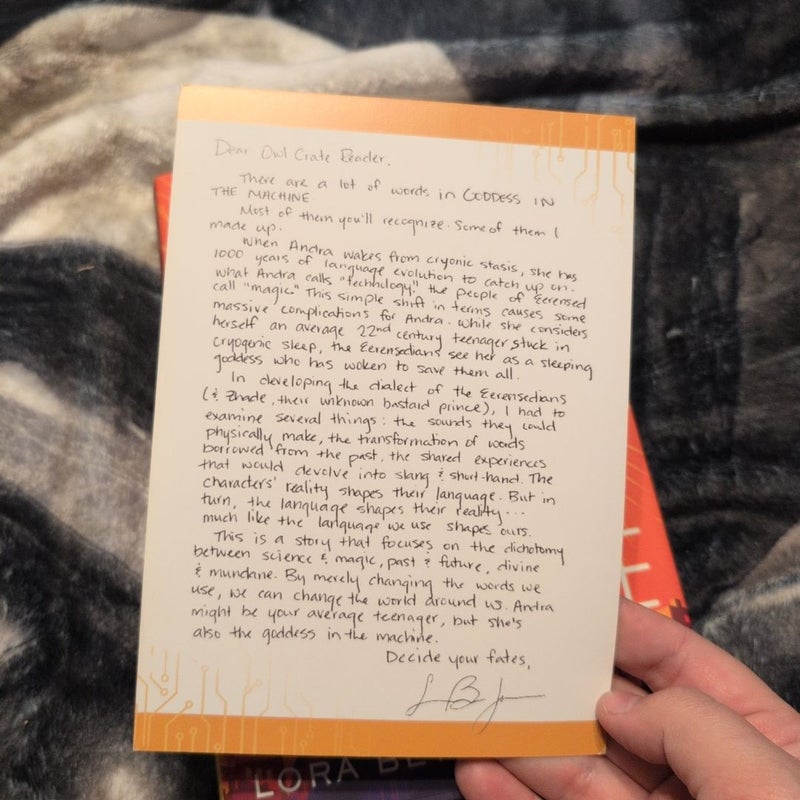 Dear Owl Crate Reader,
There are a lot of words in GODDESS IN
THE MACHINE
Most of them you'll recognize. Some of them I
made up.
When Andra wakes from cryonic stasis, she has
1000 years of language evolution to catch up on.
What Andra calls "technology," the people of Eerensed
call "magic." This simple shift in terms causes some
massive complications for Andra. While she considers
herself an average 22nd century teenager stuck in
cryogenic sleep, the Eerensedians see her as a sleeping
goddess who has woken to save them all.
In developing the dialect of the Eerensedians
(& Zhade, their unknown bastard prince), I had to
examine several things: the sounds they could
physically make, the transformation of words
borrowed from the past, the shared experiences
that would devolve into slang & short-hand. The
characters' reality shapes their language. But in
turn, the language shapes their reality...
much like the language we use shapes ours.
This is a story that focuses on the dichotomy
between science & magic, past & future, divine
& mundane. By merely changing the words we
use, we can change the world around us. Andra
might be your average teenager, but she's
also the goddess in the machine.
Decide your fates,
LORA BE